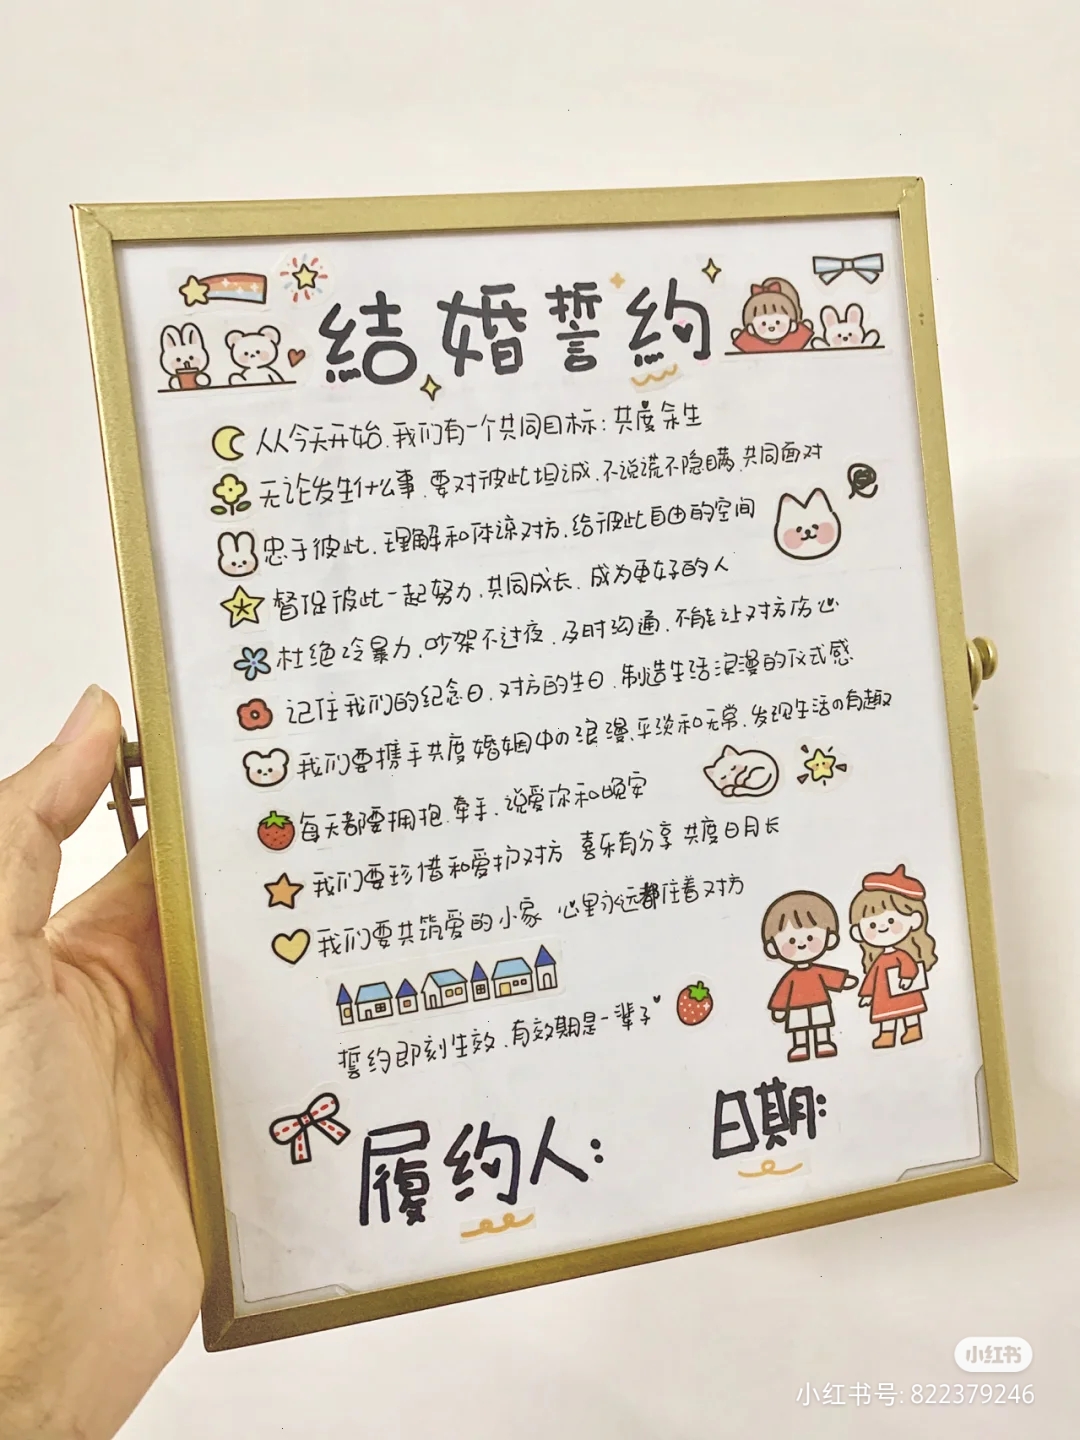 結婚誓約
从今天开始.我们有一个共同目标:共度余生
无论发生什么事.要对彼此坦诚.不说谎不隐瞒.共同面对
忠于彼此.理解和体谅对方.给彼此自由的空间
督促彼此一起努力.共同成长.成为更好的人
杜绝冷暴力.吵架不过夜.及时沟通.不能让对方伤心
记住我们的纪念日.对方的生日.制造生活浪漫的仪式感
我们要携手共度婚姻中の浪漫.平淡和无常.发现生活の有趣
每天都要拥抱.牵手.说爱你和晚安
我们要珍惜和爱护对方 喜乐有分享 共度日月长
我们要共筑爱的小家 心里永远都住着对方
誓约即刻生效.有效期是一辈子
履约人: 日期:
小红书
小红书号: 822379246